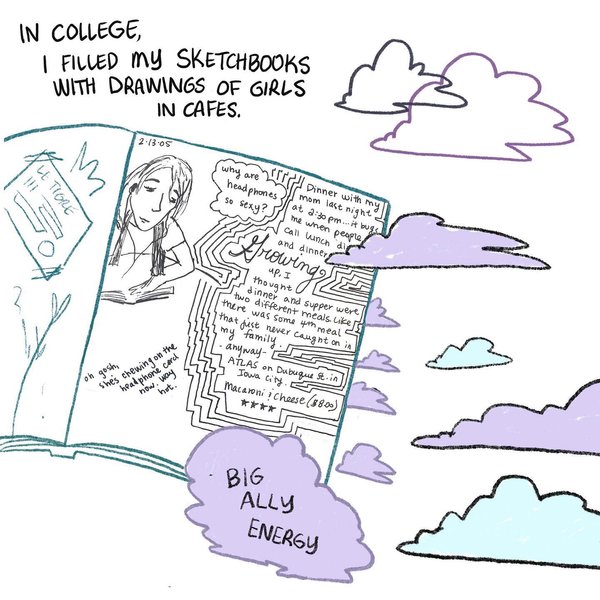 IN COLLEGE,
I FILLED MY SKETCHBOOKS
WITH DRAWINGS OF GIRLS
IN CAFES.
LE TIGRE
2-13-05
why are
headphones
so sexy?
Dinner with my
mom last night
at 2:30 pm...it bugs
me when people
call lunch di
and dinne
Growing
up, I
thought
dinner and supper were
two different meals. Like
there was some 4th meal
that just never caught on in
my family.
anyway-
ATLAS on Dubuque St. in
Iowa City.
Macaroni & Cheese ($8.00)
★★★★
oh gosh,
she's chewing on the
headphone cord
now. way
hot.
BIG
ALLY
ENERGY